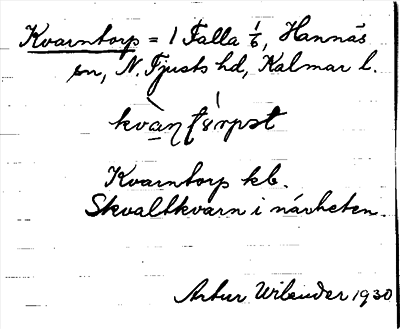 Kvarntorp = 1 Falla 1/6, Hannäs
sn, N. Tjusts hd, Kalmar l.
Kvarntorp kb.
Skvaltkvarn i närheten.
Artur Wilender 1930